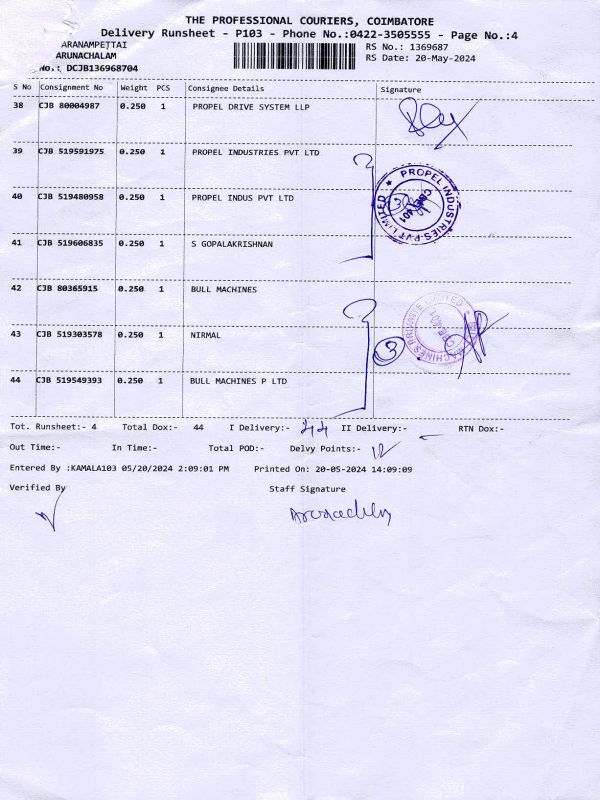 THE PROFESSIONAL COURIERS, COIMBATORE
Delivery Runsheet - P103 - Phone No.:0422-3505555 - Page No.:4
ARANAMPETTAI
ARUNACHALAM
No.: DCJB136968704
RS No.: 1369687
RS Date: 20-May-2024
S No Consignment No Weight PCS Consignee Details Signature
38 CJB 80004987 0.250 1 PROPEL DRIVE SYSTEM LLP
39 CJB 519591975 0.250 1 PROPEL INDUSTRIES PVT LTD
40 CJB 519480958 0.250 1 PROPEL INDUS PVT LTD
PROPEL INDUSTRIES PVT LIMITED
41 CJB 519606835 0.250 1 S GOPALAKRISHNAN
42 CJB 80365915 0.250 1 BULL MACHINES
43 CJB 519303578 0.250 1 NIRMAL
3
BULL MACHINES PRIVATE LIMITED
44 CJB 519549393 0.250 1 BULL MACHINES P LTD
Tot. Runsheet:- 4 Total Dox:- 44 I Delivery:- 44 II Delivery:- RTN Dox:-
Out Time:- In Time:- Total POD:- Delvy Points:- 12
Entered By :KAMALA103 05/20/2024 2:09:01 PM Printed On: 20-05-2024 14:09:09
Verified By Staff Signature